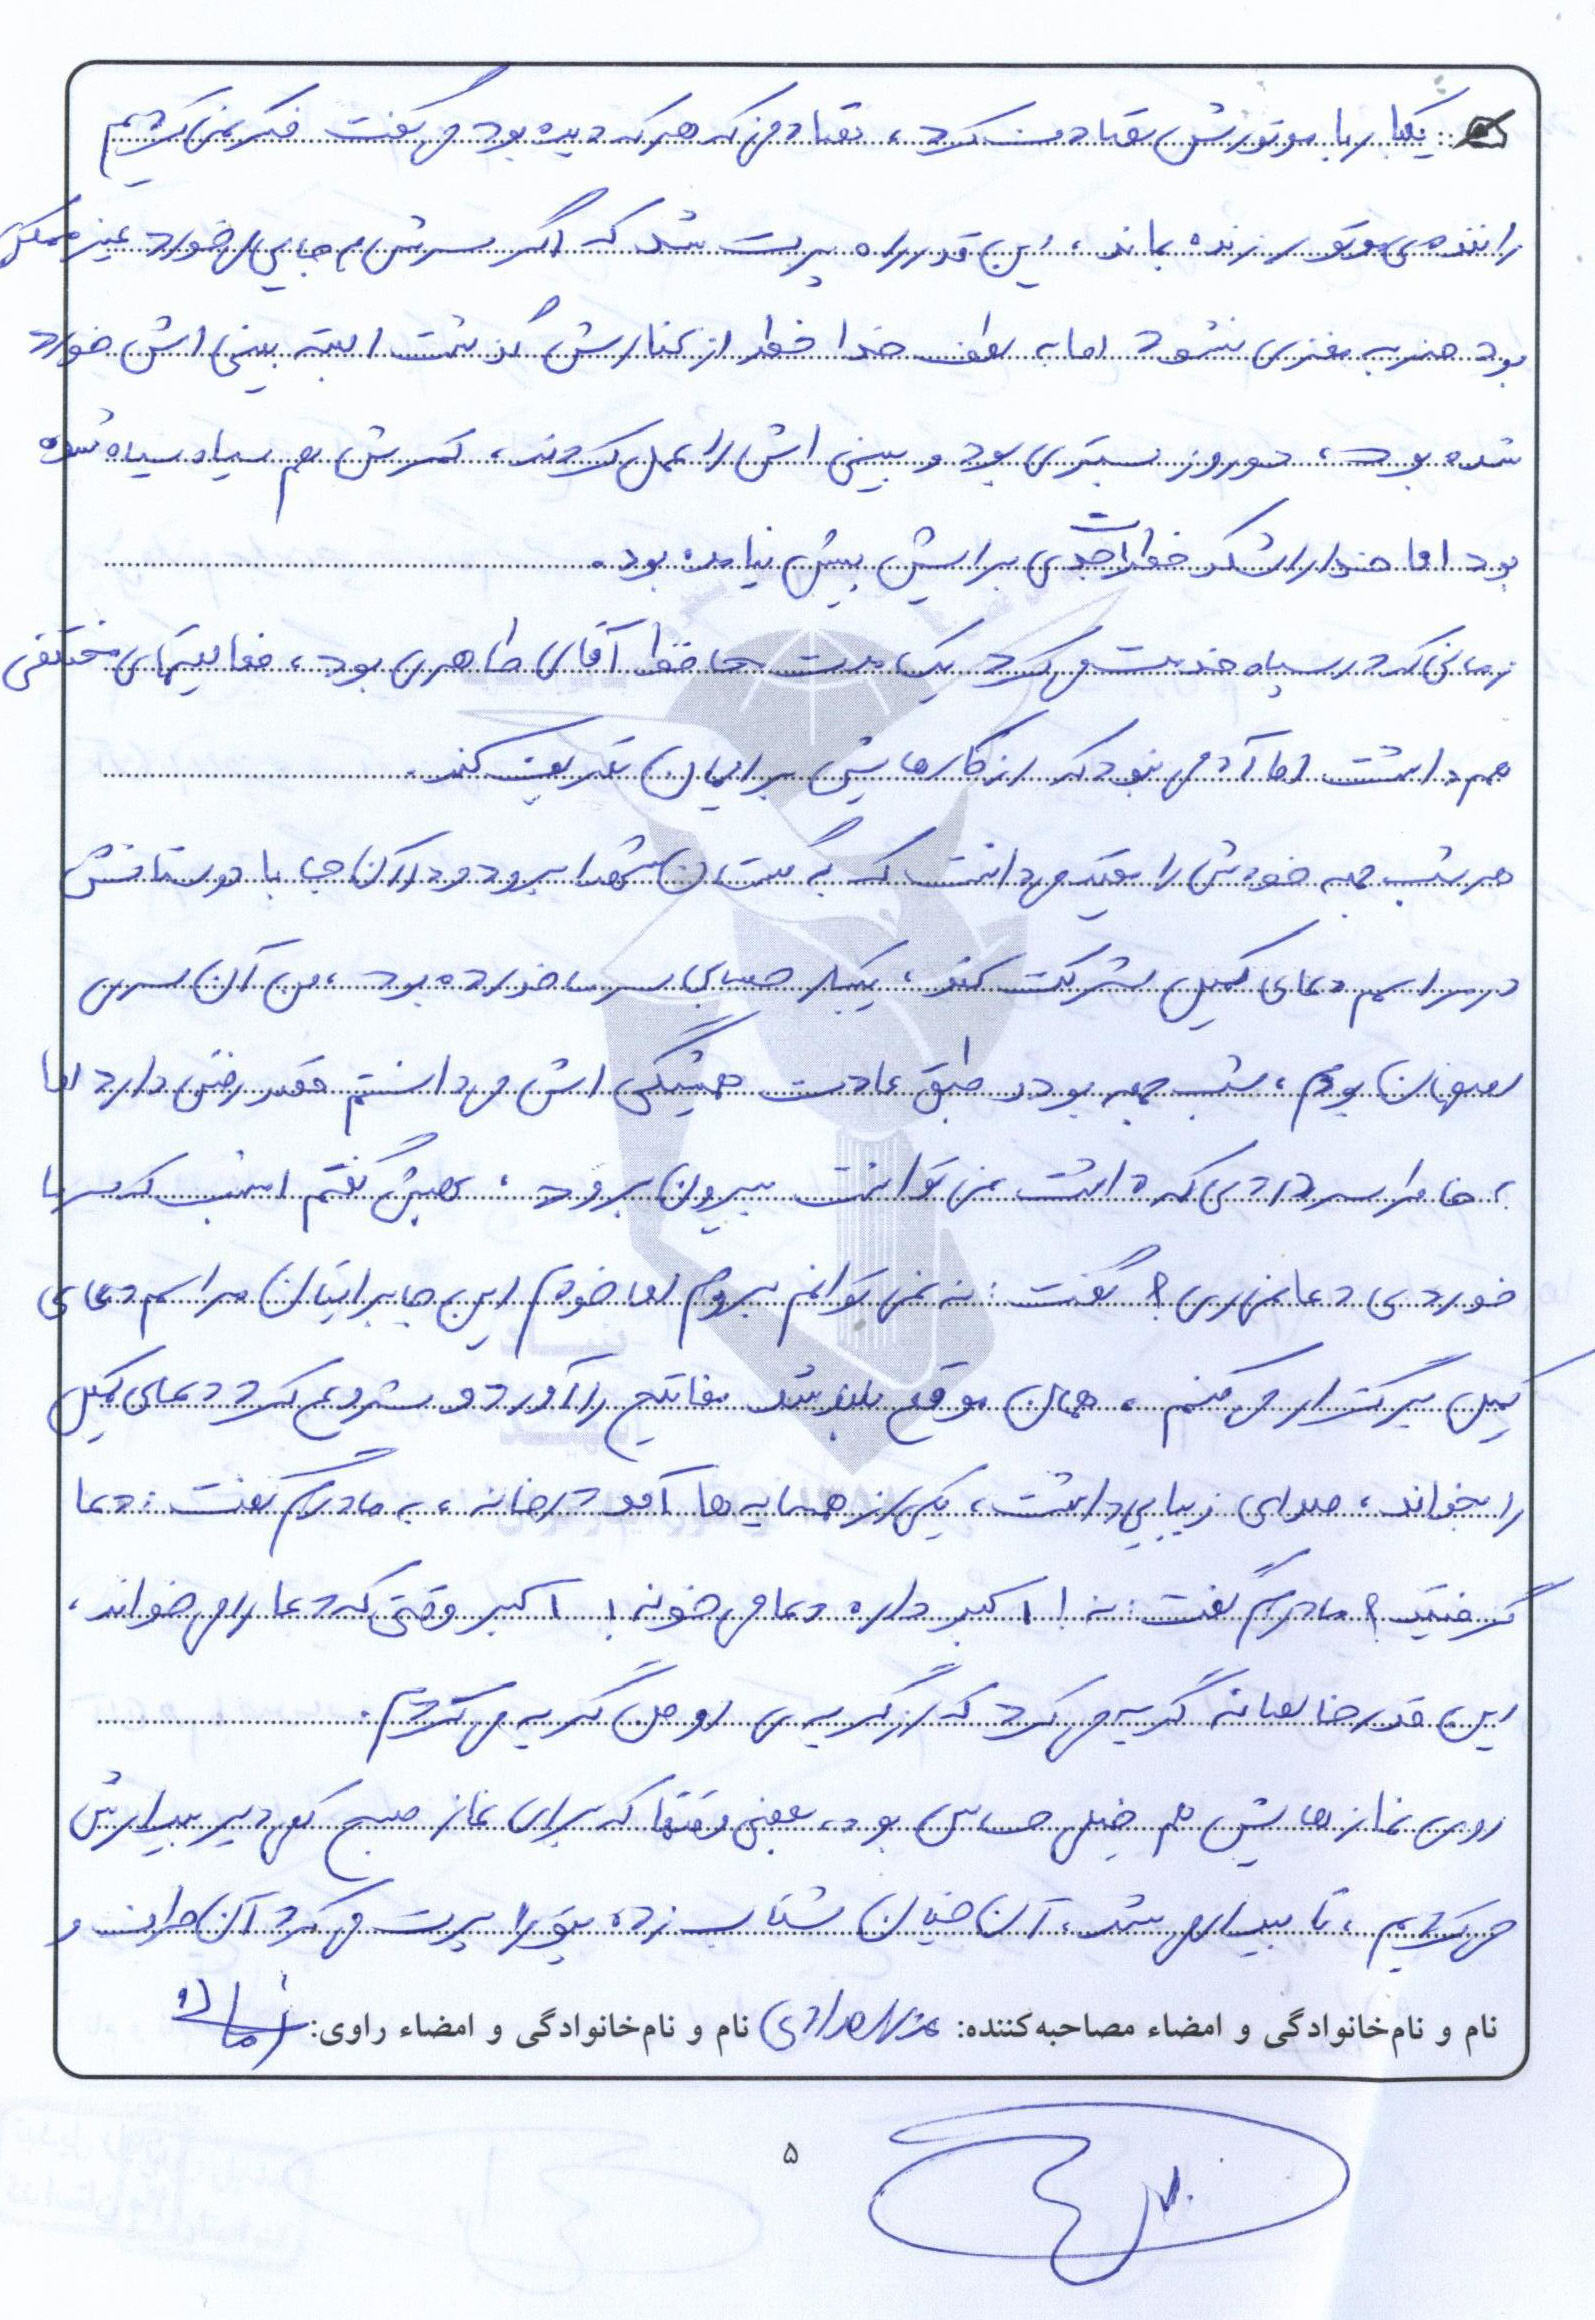 یکبار با موتورش تصادف کرد، تصادفی که هر که دیده بود می گفت فکر نمی کردیم
راننده ی موتور زنده بماند، این قدر راه پرت شد که اگر سرش به جایی می خورد غیرممکن
بود ضربه مغزی نشود اما به لطف خدا خطر از کنارش گذشت البته بینی اش خورد
شده بود، دو روز بستری بود و بینی اش را عمل کردند، کمرش هم سیاه سیاه شده
بود اما خدا را شکر خطرات جدی برایش پیش نیامده بود.
زمانی که در سپاه خدمت می کرد یک مدت محافظ آقای طاهری بود، فعالیتهای مختلفی
هم داشت اما آدمی نبود که از کارهایش برایمان تعریف کند.
هر شب جمعه خودش را مقید می دانست که به گلستان شهدا برود و در آن جا با دوستانش
در مراسم دعای کمیل شرکت کند، یکبار حسابی سرما خورده بود، من آن سری
اصفهان بودم، شب جمعه بود و طبق عادت همیشگی اش می دانستم قصد رفتن دارد اما
به خاطر سردردی که داشت نمی توانست بیرون برود، بهش گفتم امشب که سرما
خوردی دعا نمی ری؟ گفت: نه نمی توانم بروم اما خودم این جا برایتان مراسم دعای
کمیل برگزار می کنم، همان موقع بلند شد مفاتیح را آورد و شروع کرد دعای کمیل
را بخواند، صدای زیبایی داشت، یکی از همسایه ها آمد در خانه، به مادرم گفت: دعا
گرفتید؟ مادرم گفت: نه! اکبر داره دعا می خونه! اکبر وقتی که دعا را می خواند،
این قدر خالصانه گریه می کرد که از گریه ی او من گریه می کردم.
روی نمازهایش هم خیلی حساس بود، بعضی وقتها که برای نماز صبح کمی دیر بیدارش
می کردیم، تا بیدار می شد، آن چنان شتاب زده پتو را پرت می کرد آن طرف و
نام و نام‌خانوادگی و امضاء مصاحبه‌کننده: نام و نام‌خانوادگی و امضاء راوی:
۵